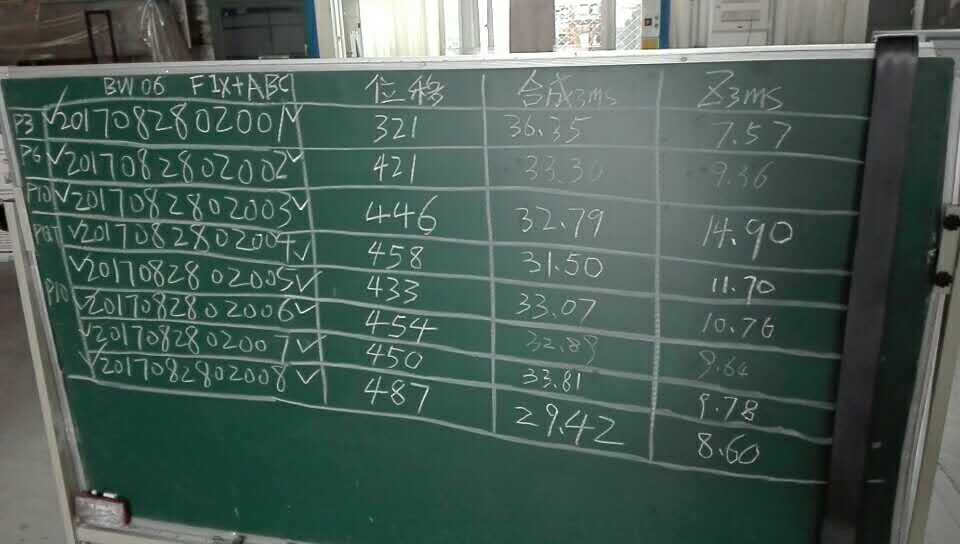 BW06 FIX+ABC 位移 合成3ms Z3ms
P3 ✓2017082802001✓ 321 36.35 7.57
P6 ✓2017082802002✓ 421 33.30 9.36
P10 ✓2017082802003✓ 446 32.79 14.90
✓2017082802004✓ 458 31.50 11.70
✓2017082802005✓ 433 33.07 10.76
P10 ✓2017082802006✓ 454 32.89 9.64
✓2017082802007✓ 450 33.81 9.78
✓2017082802008✓ 487 29.42 8.60